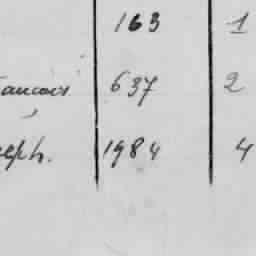 163 1
ancois 637 2
eph. 1984 4